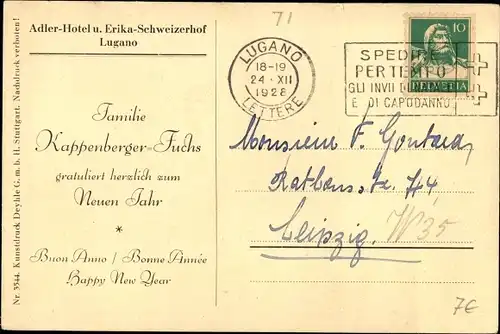 71
Adler-Hotel u. Erika-Schweizerhof
Lugano
Familie
Kappenberger-Fuchs
gratuliert herzlich zum
Neuen Jahr
*
Buon Anno / Bonne Année
Happy New Year
Nr. 3344. Kunstdruck Deyhle G. m. b. H. Stuttgart. Nachdruck verboten!
LUGANO
18-19
24·XII
1928
LETTERE
SPEDITE
PER TEMPO
GLI INVII DI
E DI CAPODANNO
10
HELVETIA
Monsieur F. Gontard
Rathausstr. 44
Leipzig. W35
7€